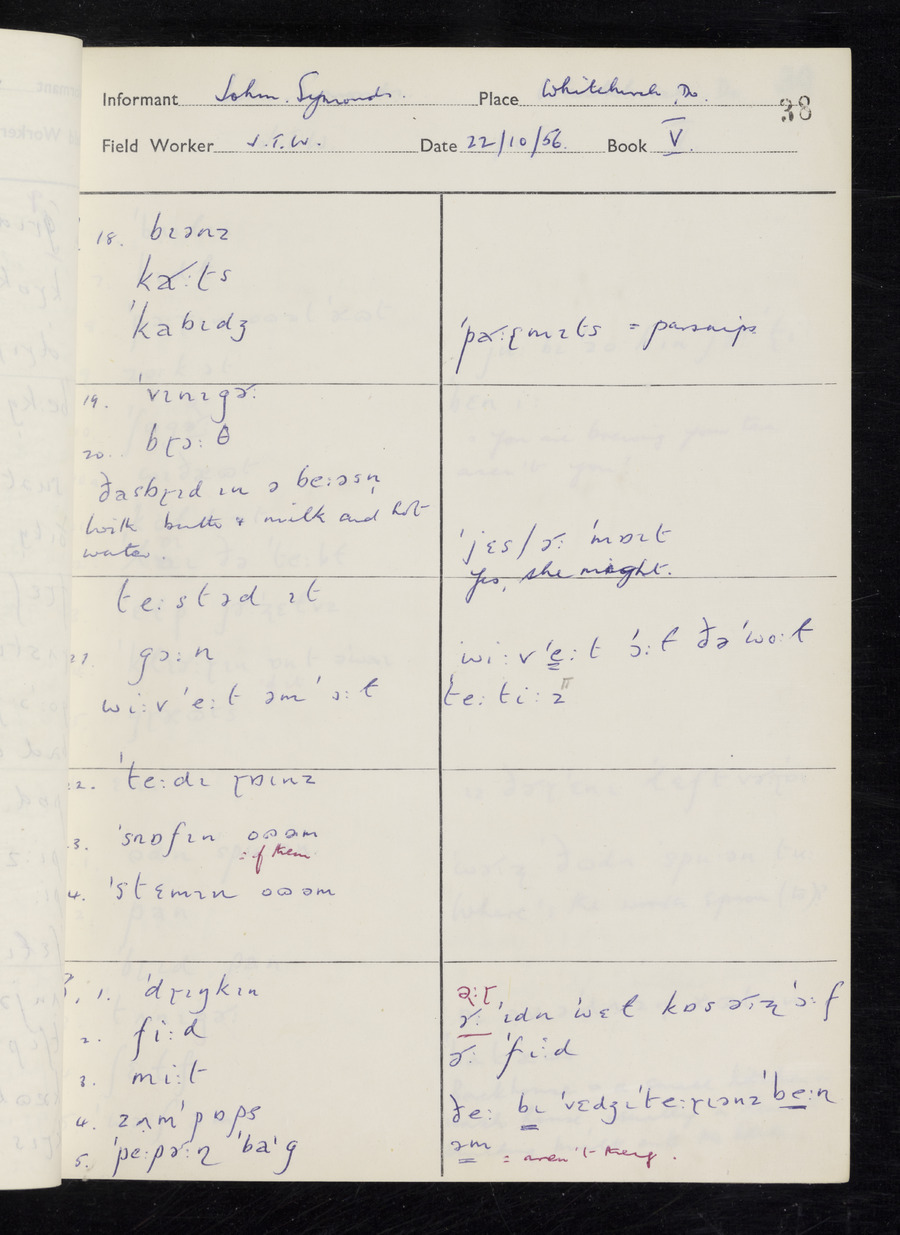 Informant John. Symonds. Place Whitchurch, Do. 38
Field Worker J.T.W. Date 22/10/56. Book V.
18. bɪənz
kɚ:ts
ˈkabɪdʒ
ˈpɚ:ʈmɪts = parsnips
19. ˈvɪnɪgɚ:
20. bɽɔ:θ
ðasbɽɪd ɪn ə be:əsn̩
with butter + milk and hot
water.
ˈjɛs/ɚ: ˈmɒɪt
Yes, she might.
te:stəd ɪt
21. gɔ:n
wi:v ˈe:t əm ˈɔ:l
wi:v ˈe:t ˈɔ:l ðə ˈwo:l
te:ti:z
2. ˈte:dɪ ɽɒɪnz
3. ˈsnɒfɪn əəm
= of them
4. ˈstɛmɪn əəm
1. ˈdɽɪŋkɪn
2. fi:d
3. mi:t
4. zʌmˈpɒps
5. ˈpe:pɚ:ɳ ˈba'g
ə:ɽ
ɚ: ˈɪdn ˈwɛt kɒs ɚ:z ˈɔ:f
ɚ: ˈfi:d
ðe: bɪ ˈvɛdʒɪˈte:ɽɪənz ˈbe:n
əm = aren't they.